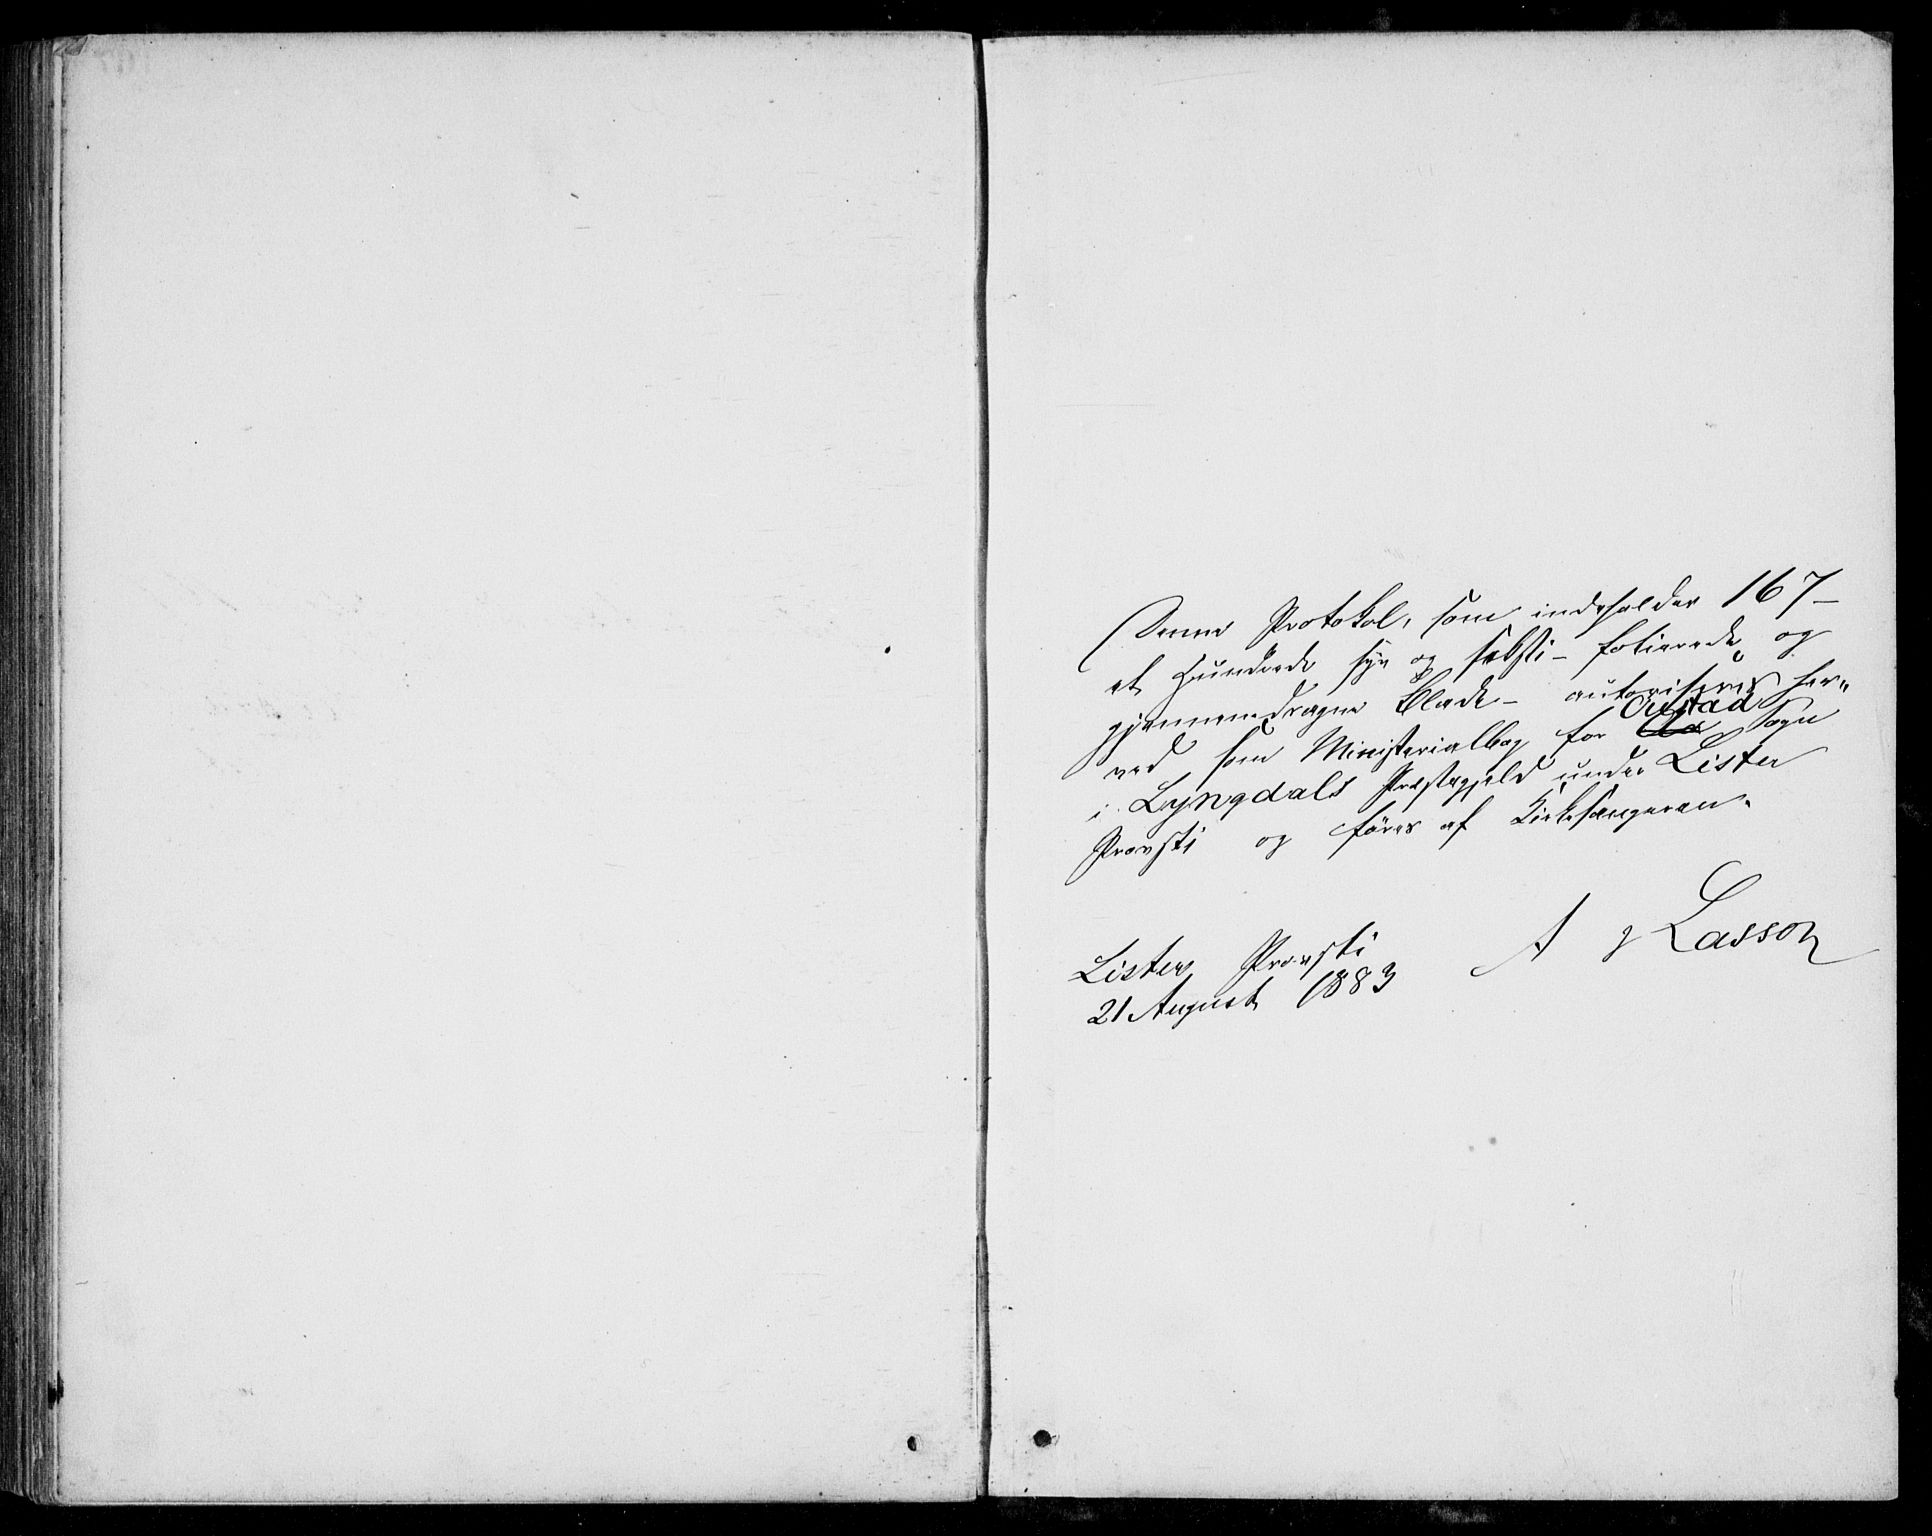 Denne Protokol, som indeholder 167 –
et Hundrede syv og seksti – folierede og
gjennemdragne Blade – autoriseres her„
ved som Ministerialbog for Austad Sogn
i Lyngdals Præstegjeld under Lister
Provsti og føres af Kirkesangeren.
Lister Provsti
21 August 1883
A J Lasson